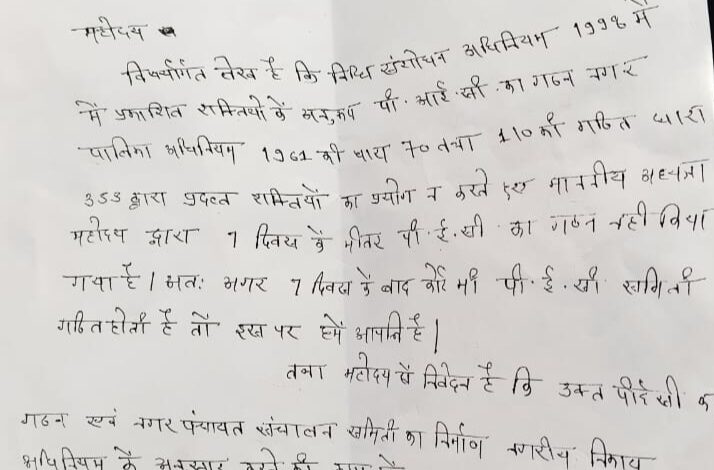 महोदय
विषयांर्गत लेख है कि विधि संशोधन अधिनियम 1998 में
में प्रकाशित शक्तियों के अनुरूप पी. आई. सी. का गठन नगर
पालिका अधिनियम 1961 की धारा 70 तथा 110 की गठित धारा
355 द्वारा प्रदत्त शक्तियों का प्रयोग न करते हुए माननीय अध्यक्ष
महोदय द्वारा 7 दिवस के भीतर पी. ई. सी. का गठन नही किया
गया है। अतः अगर 7 दिवस के बाद कोई भी पी. ई. सी. समिती
गठित होती है तो इस पर हमें आपत्ति है|
तथा महोदय से निवेदन है कि उक्त पीईसी क
गठन एवं नगर पंचायत संचालन समिती का निर्माण नगरीय निकाय
अधिनियम के अनुसार करने की